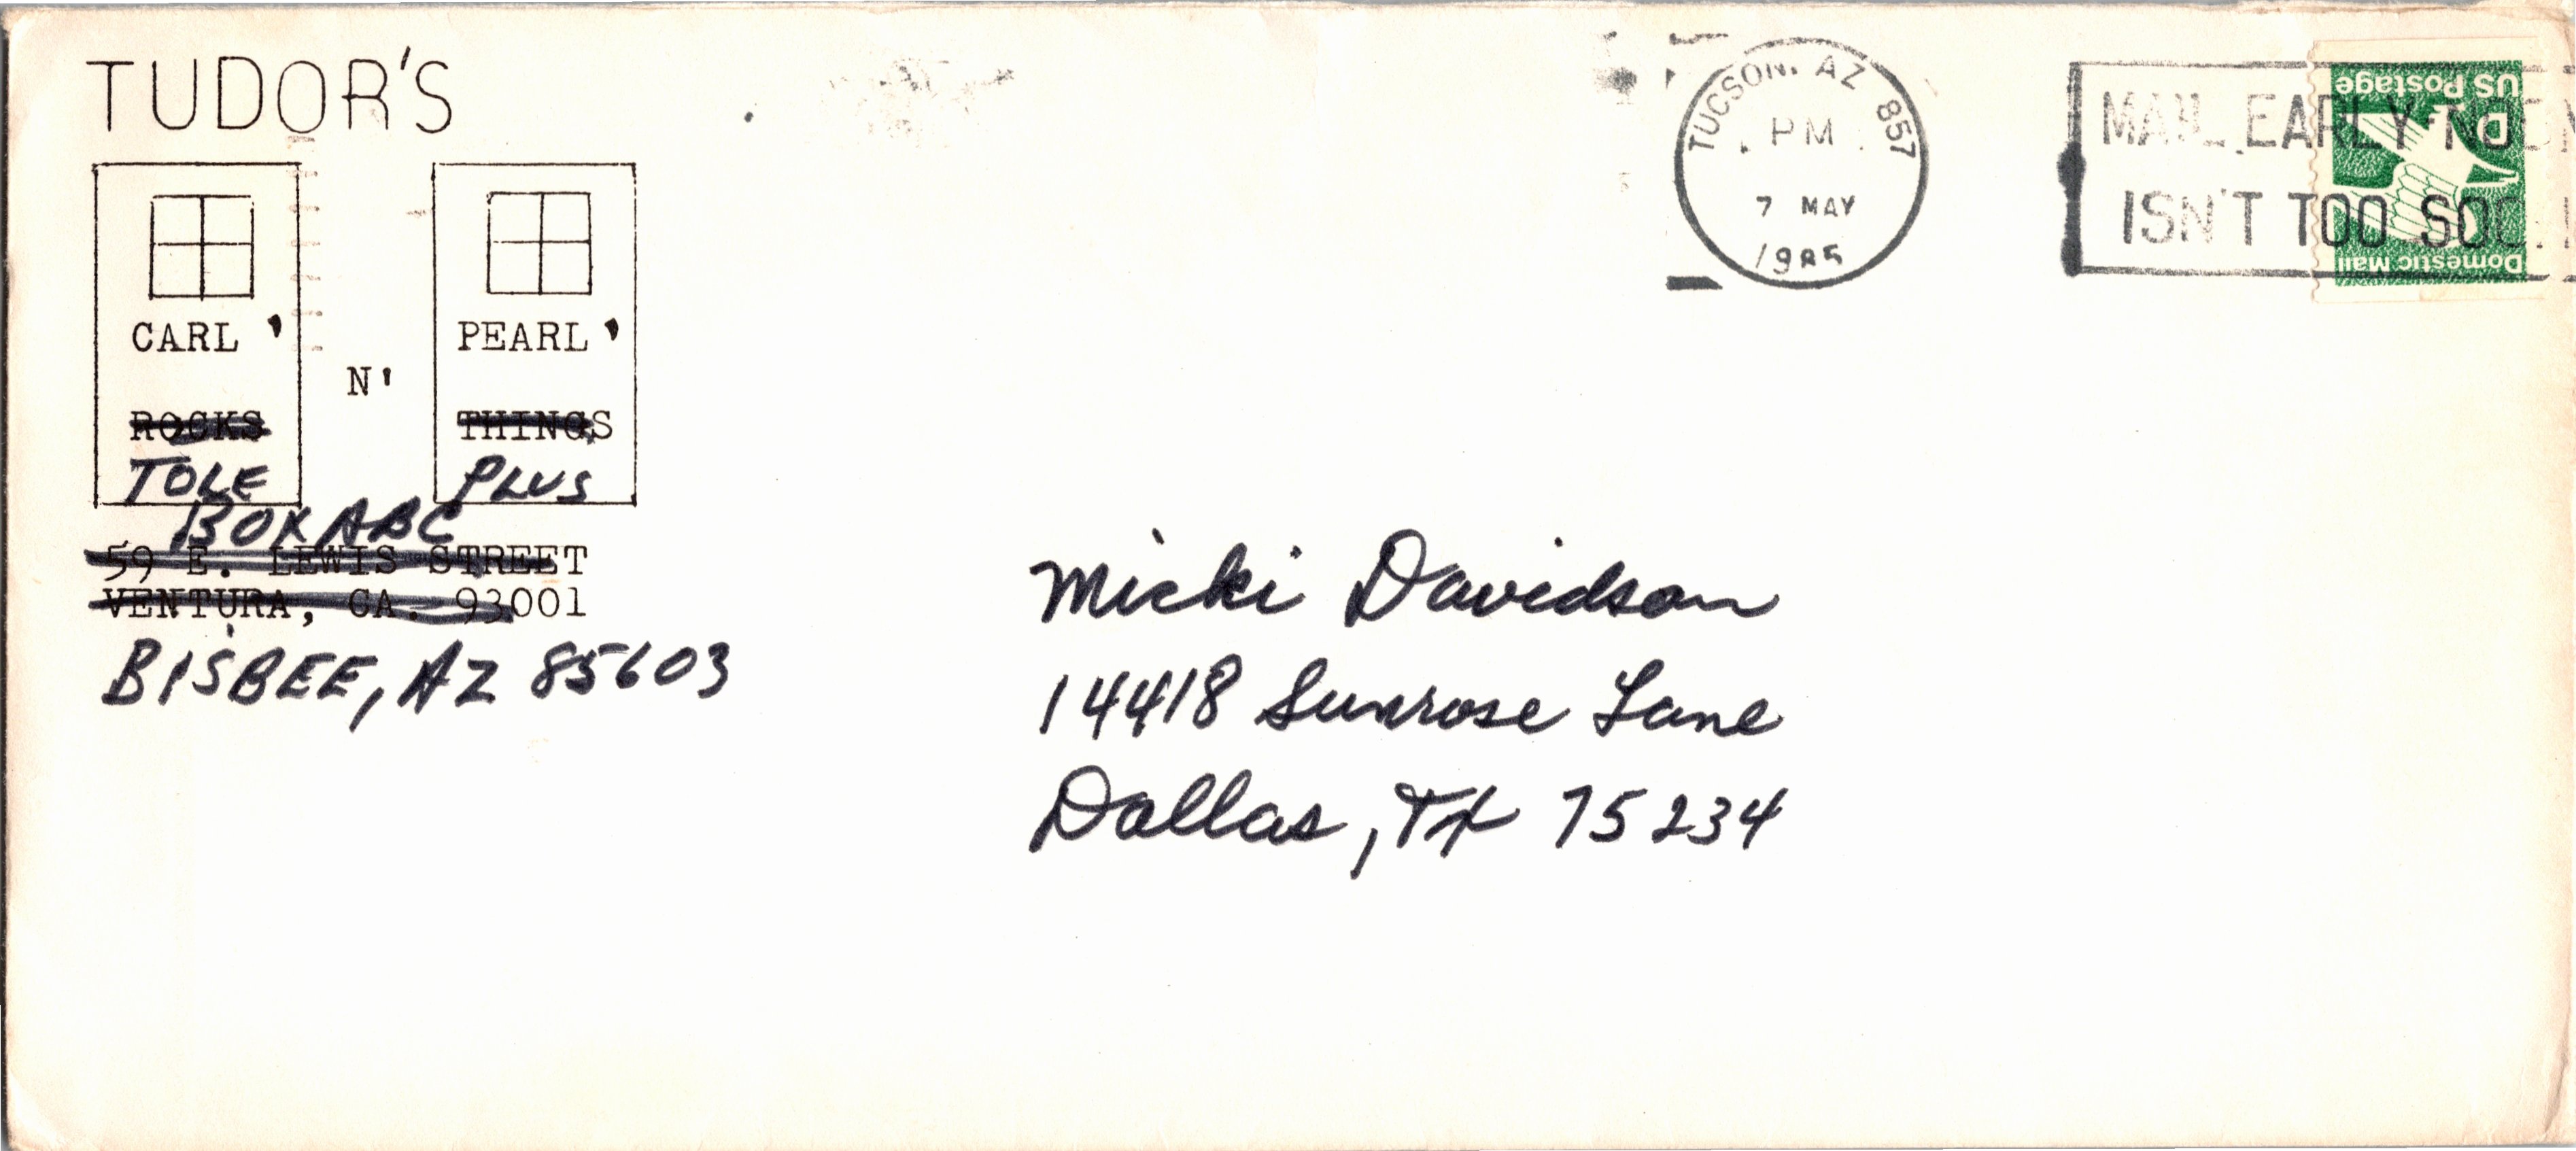 TUDOR'S
CARL '
N'
PEARL '
ROCKS
THINGS
TOLE
PLUS
BOX ABC
59 E. LEWIS STREET
VENTURA, CA. 93001
BISBEE, AZ 85603
TUCSON, AZ 857
PM
7 MAY
1985
MAIL EARLY - NOON
ISN'T TOO SOON
US Postage
D
Domestic Mail
Micki Davidson
14418 Sunrose Lane
Dallas, TX 75234